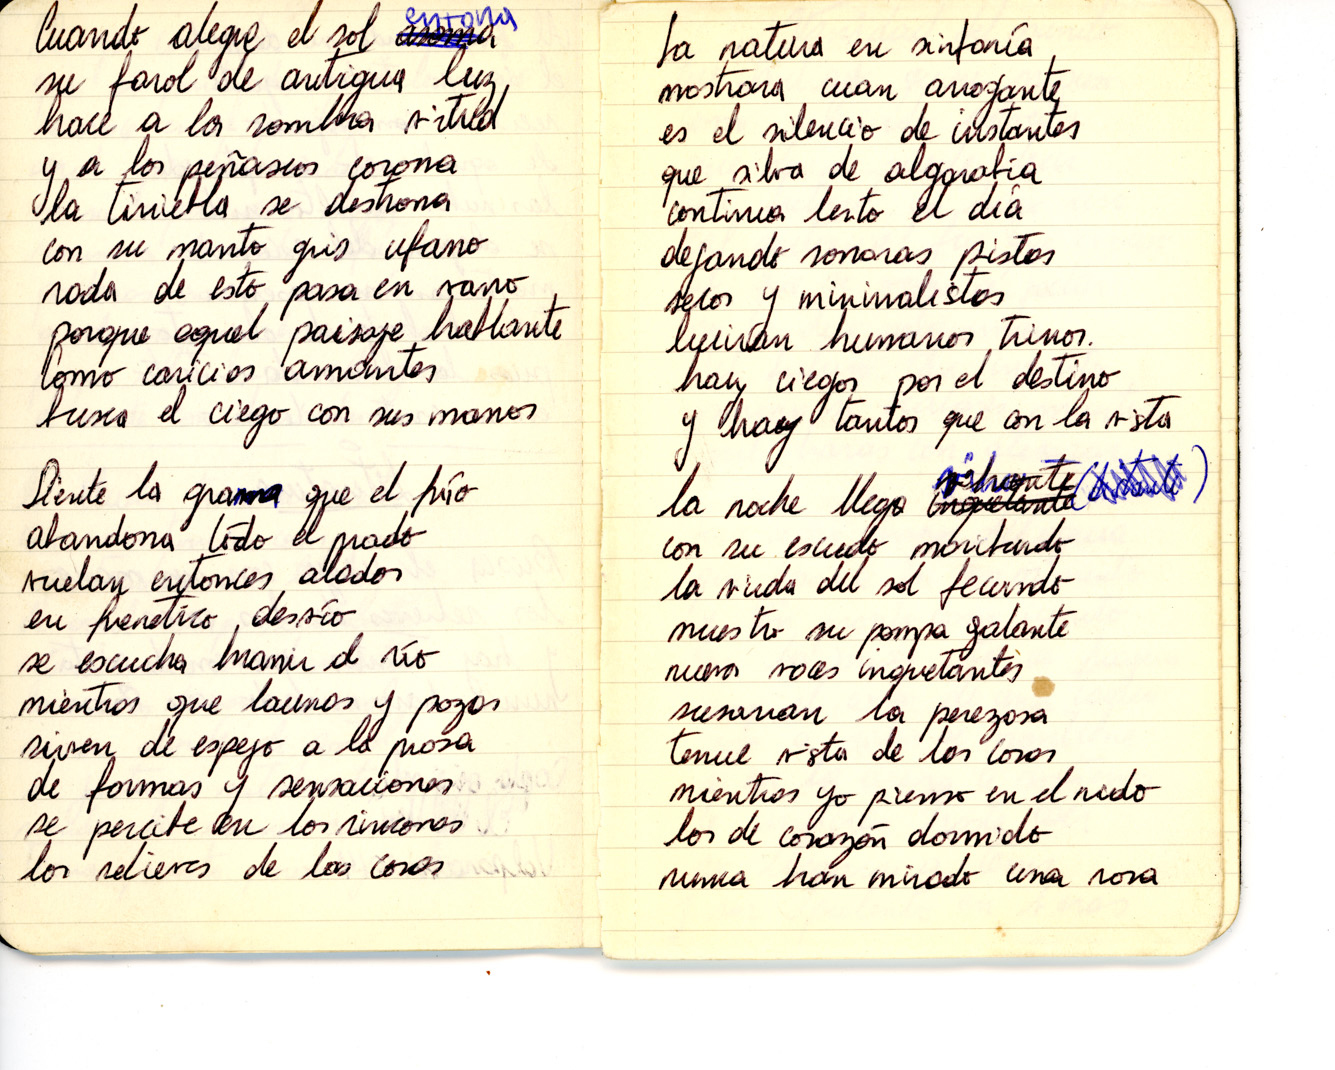 Cuando alegre el sol entona
su farol de antigua luz
hace a la sombra virtud
y a los peñascos corona
la tiniebla se destrona
con su manto gris ufano
nada de esto pasa en vano
porque aquel paisaje hablante
como caricias amantes
busca el ciego con sus manos
Siente la grama que el frío
abandona todo el prado
vuelan entonces alados
en frenético desvío
se escucha bramir el río
mientras que lacunas y pozos
sirven de espejo a la prosa
de formas y sensaciones
se percibe en los rincones
los relieves de las cosas
La natura en sinfonía
mostrara cuan arrogante
es el silencio de instantes
que silva de algarabía
continua lento el día
dejando sonoras pistas
secos y minimalistas
lucirán humanos trinos.
hay ciegos por el destino
y hay tantos que con la vista
la noche llega vibrante
con su escudo moribundo
la viuda del sol fecundo
muestra su pompa galante
nueva voces inquietantes
susurran la perezosa
tenue vista de las cosas
mientras yo pienso en el nudo
los de corazón dormido
nunca han mirado una rosa